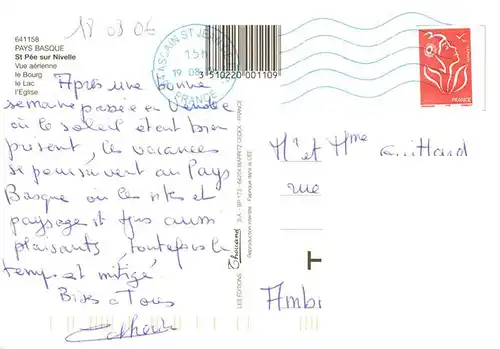 641158
PAYS BASQUE
St Pée sur Nivelle
Vue aérienne
le Bourg
le Lac
l'Église
18 03 06
ASCAIN ST JEAN
15H
19 08
FRANCE
3 510220 001109
FRANCE
Après une bonne
semaine passée en Vendée
où le soleil était bien
présent, les vacances
se poursuivent au Pays
Basque où les
paysages st tjrs aussi
plaisants, toutefois le
temps est mitigé.
Bises a Tous
Catherine
LES ÉDITIONS Thouand S.A. - BP 173 - 64204 BIARRITZ CEDEX - FRANCE
Reproduction interdite Fabriqué dans la CEE
Mr et Mme Guittard
rue
Ambi